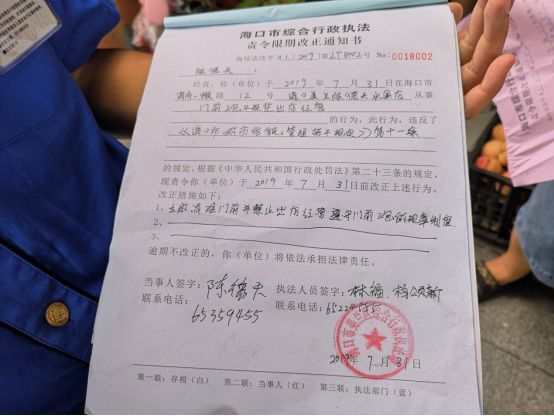 海口市综合行政执法
责令限期改正通知书
海综法改字R1(2019)第LT8002号 No:0018002
陈德夫:
经查,你(单位)于2019年7月31日在海口市
路12号海口美兰陈德夫水果店从事
门前三包不规范出店经营
的行为,此行为,违反了
《海口市城市容貌管理若干规定》第十一条
的规定,根据《中华人民共和国行政处罚法》第二十三条的规定,
现责令你(单位)于2019年7月31日前改正上述行为。
改正措施如下:
1、立即清理门前并禁止出店经营遵守门前三包的规章制度
2、
3、
逾期不改正的,你(单位)将依法承担法律责任。
当事人签字:陈德夫 执法人员签字:林
联系电话:65359455 联系电话:65224555
海口市美兰区综合行政执法局
2019年7月31日
第一联:存根(白) 第二联:当事人(红) 第三联:执法部门(蓝)